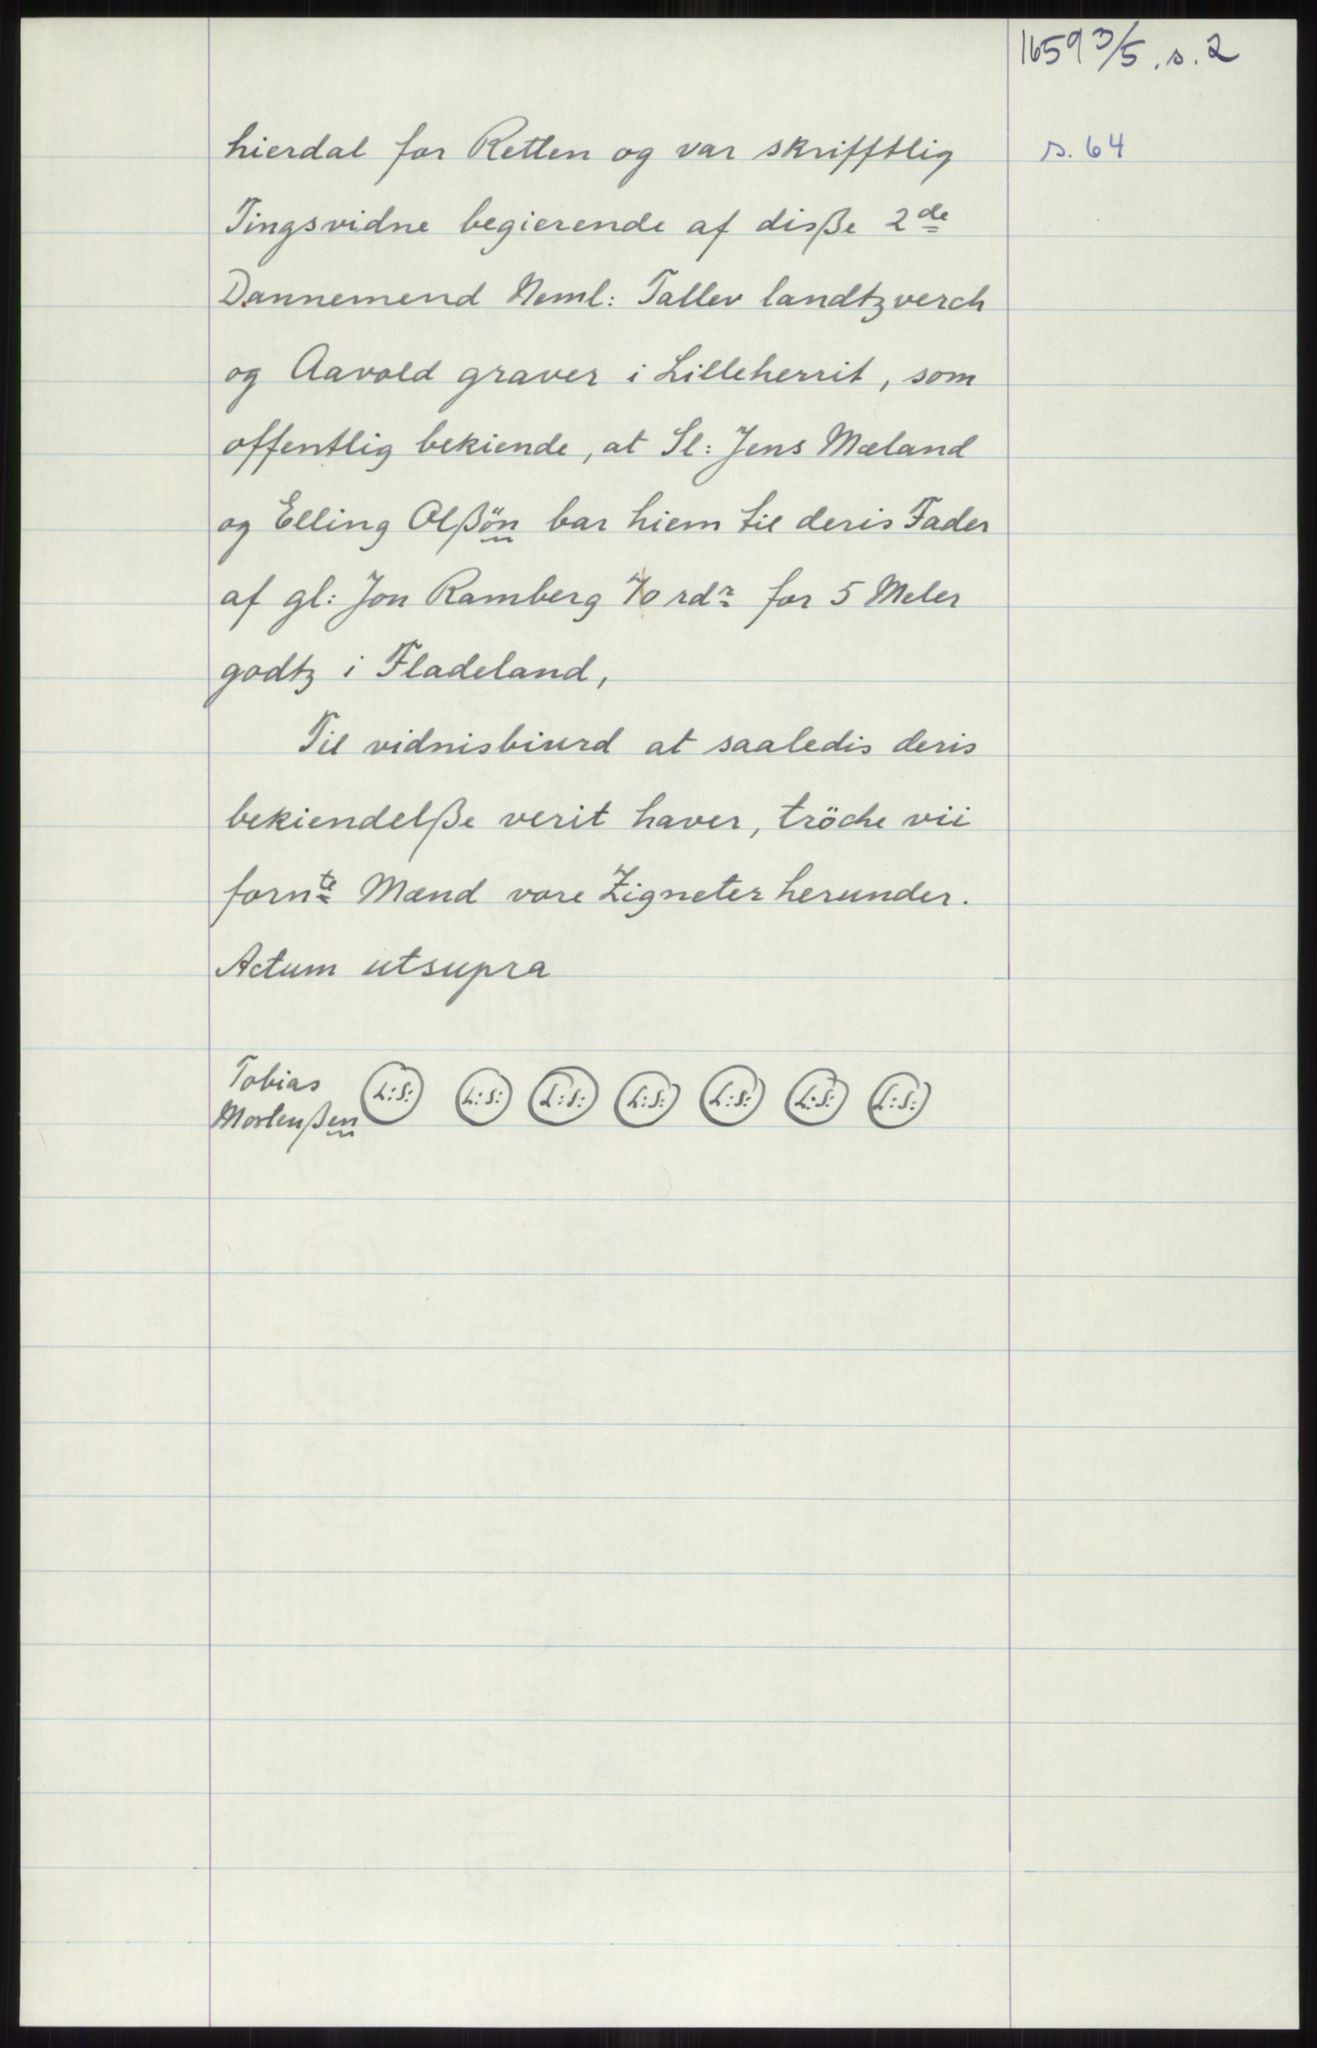 1659 3/5. s. 2
hierdal for Retten og var skrifftlig
s. 64
Tingsvidne begierende af disße 2de
Dannemend Neml: Tallev landtzverch
og Aavold graver i Lilleherrit, som
offentlig bekiende, at Sl: Jens Mæland
og Elling Olßön bar hiem til deris Fader
af gl: Jon Ramberg 70 rdr for 5 Meler
godtz i Fladeland,
Til vidnisbiurd at saaledis deris
bekiendelße verit haver, tröche vii
fornte Mænd vore Zigneter herunder.
Actum utsupra
Tobias
Mortenßen L:S: L:S: L:S: L:S: L:S: L:S: L:S: